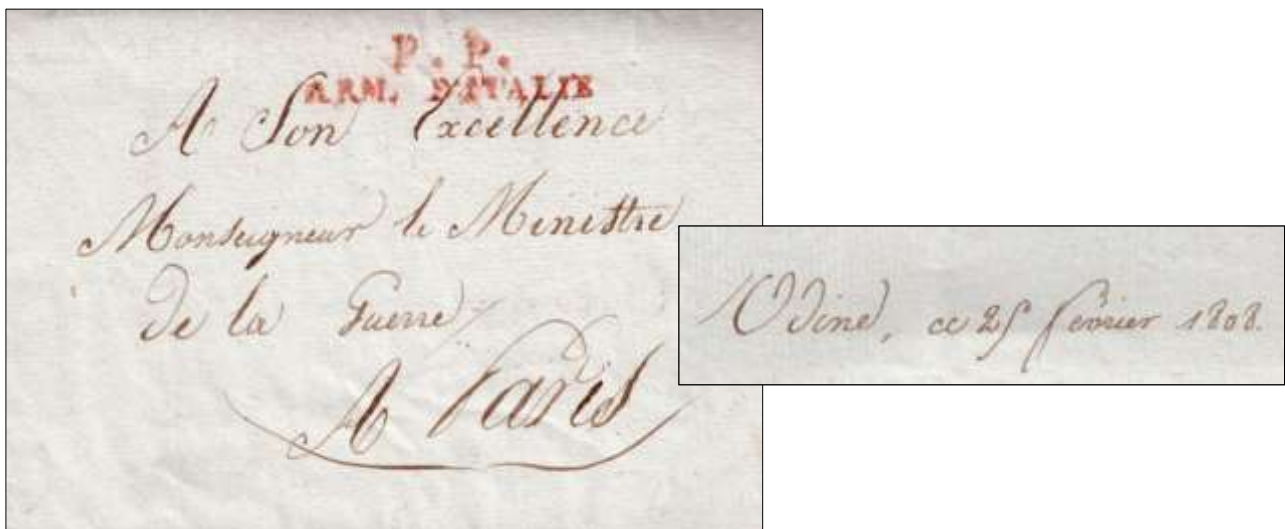 P. P.
ARM. D'ITALIE
A Son Excellence
Monseigneur le Ministre
De la Guerre
A Paris
Udine, ce 25 fevrier 1808.